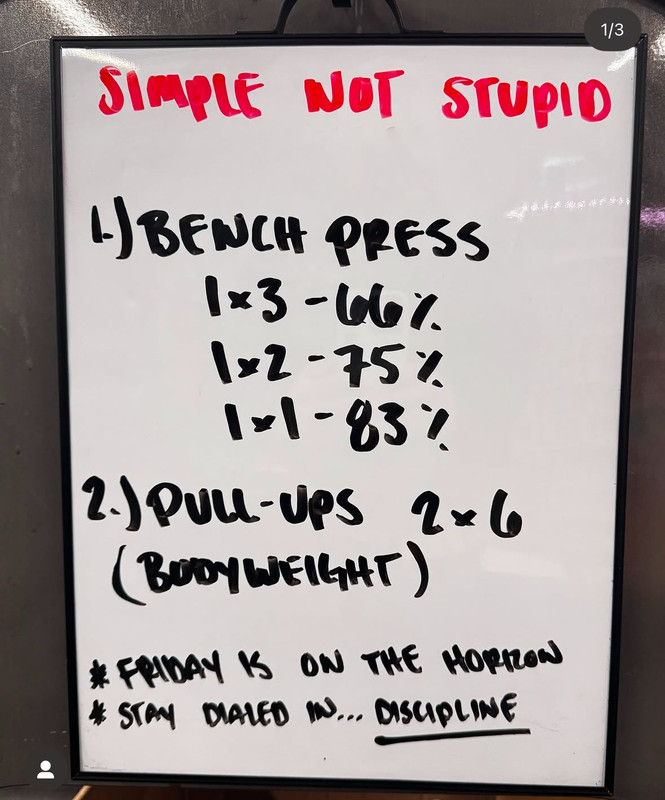 1/3
SIMPLE NOT STUPID
1.) BENCH PRESS
1x3 - 66%
1x2 - 75%
1x1 - 83%
2.) PULL-UPS 2x6
(BODYWEIGHT)
* FRIDAY IS ON THE HORIZON
* STAY DIALED IN... DISCIPLINE